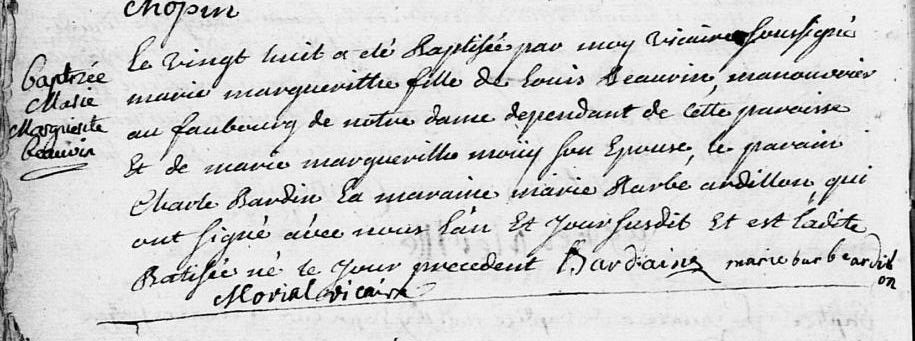 Chopin
Baptizée
Marie
Marguerite
beauvin
Le vingt huit a été Baptisée par moy vicaire soussigné
marie margueritte fille de Louis Beauvin, manouvrier
au faubourg de notre dame dependant de cette paroisse
Et de marie margueritte moüy son Epouse, le parain
Charle Bardin La maraine marie Barbe ardillon, qui
ont signé avec nous l'an Et Jour susdit Et est ladite
Batisée né le Jour precedent Bardaine marie barbe ardill
on
Morial vicaire